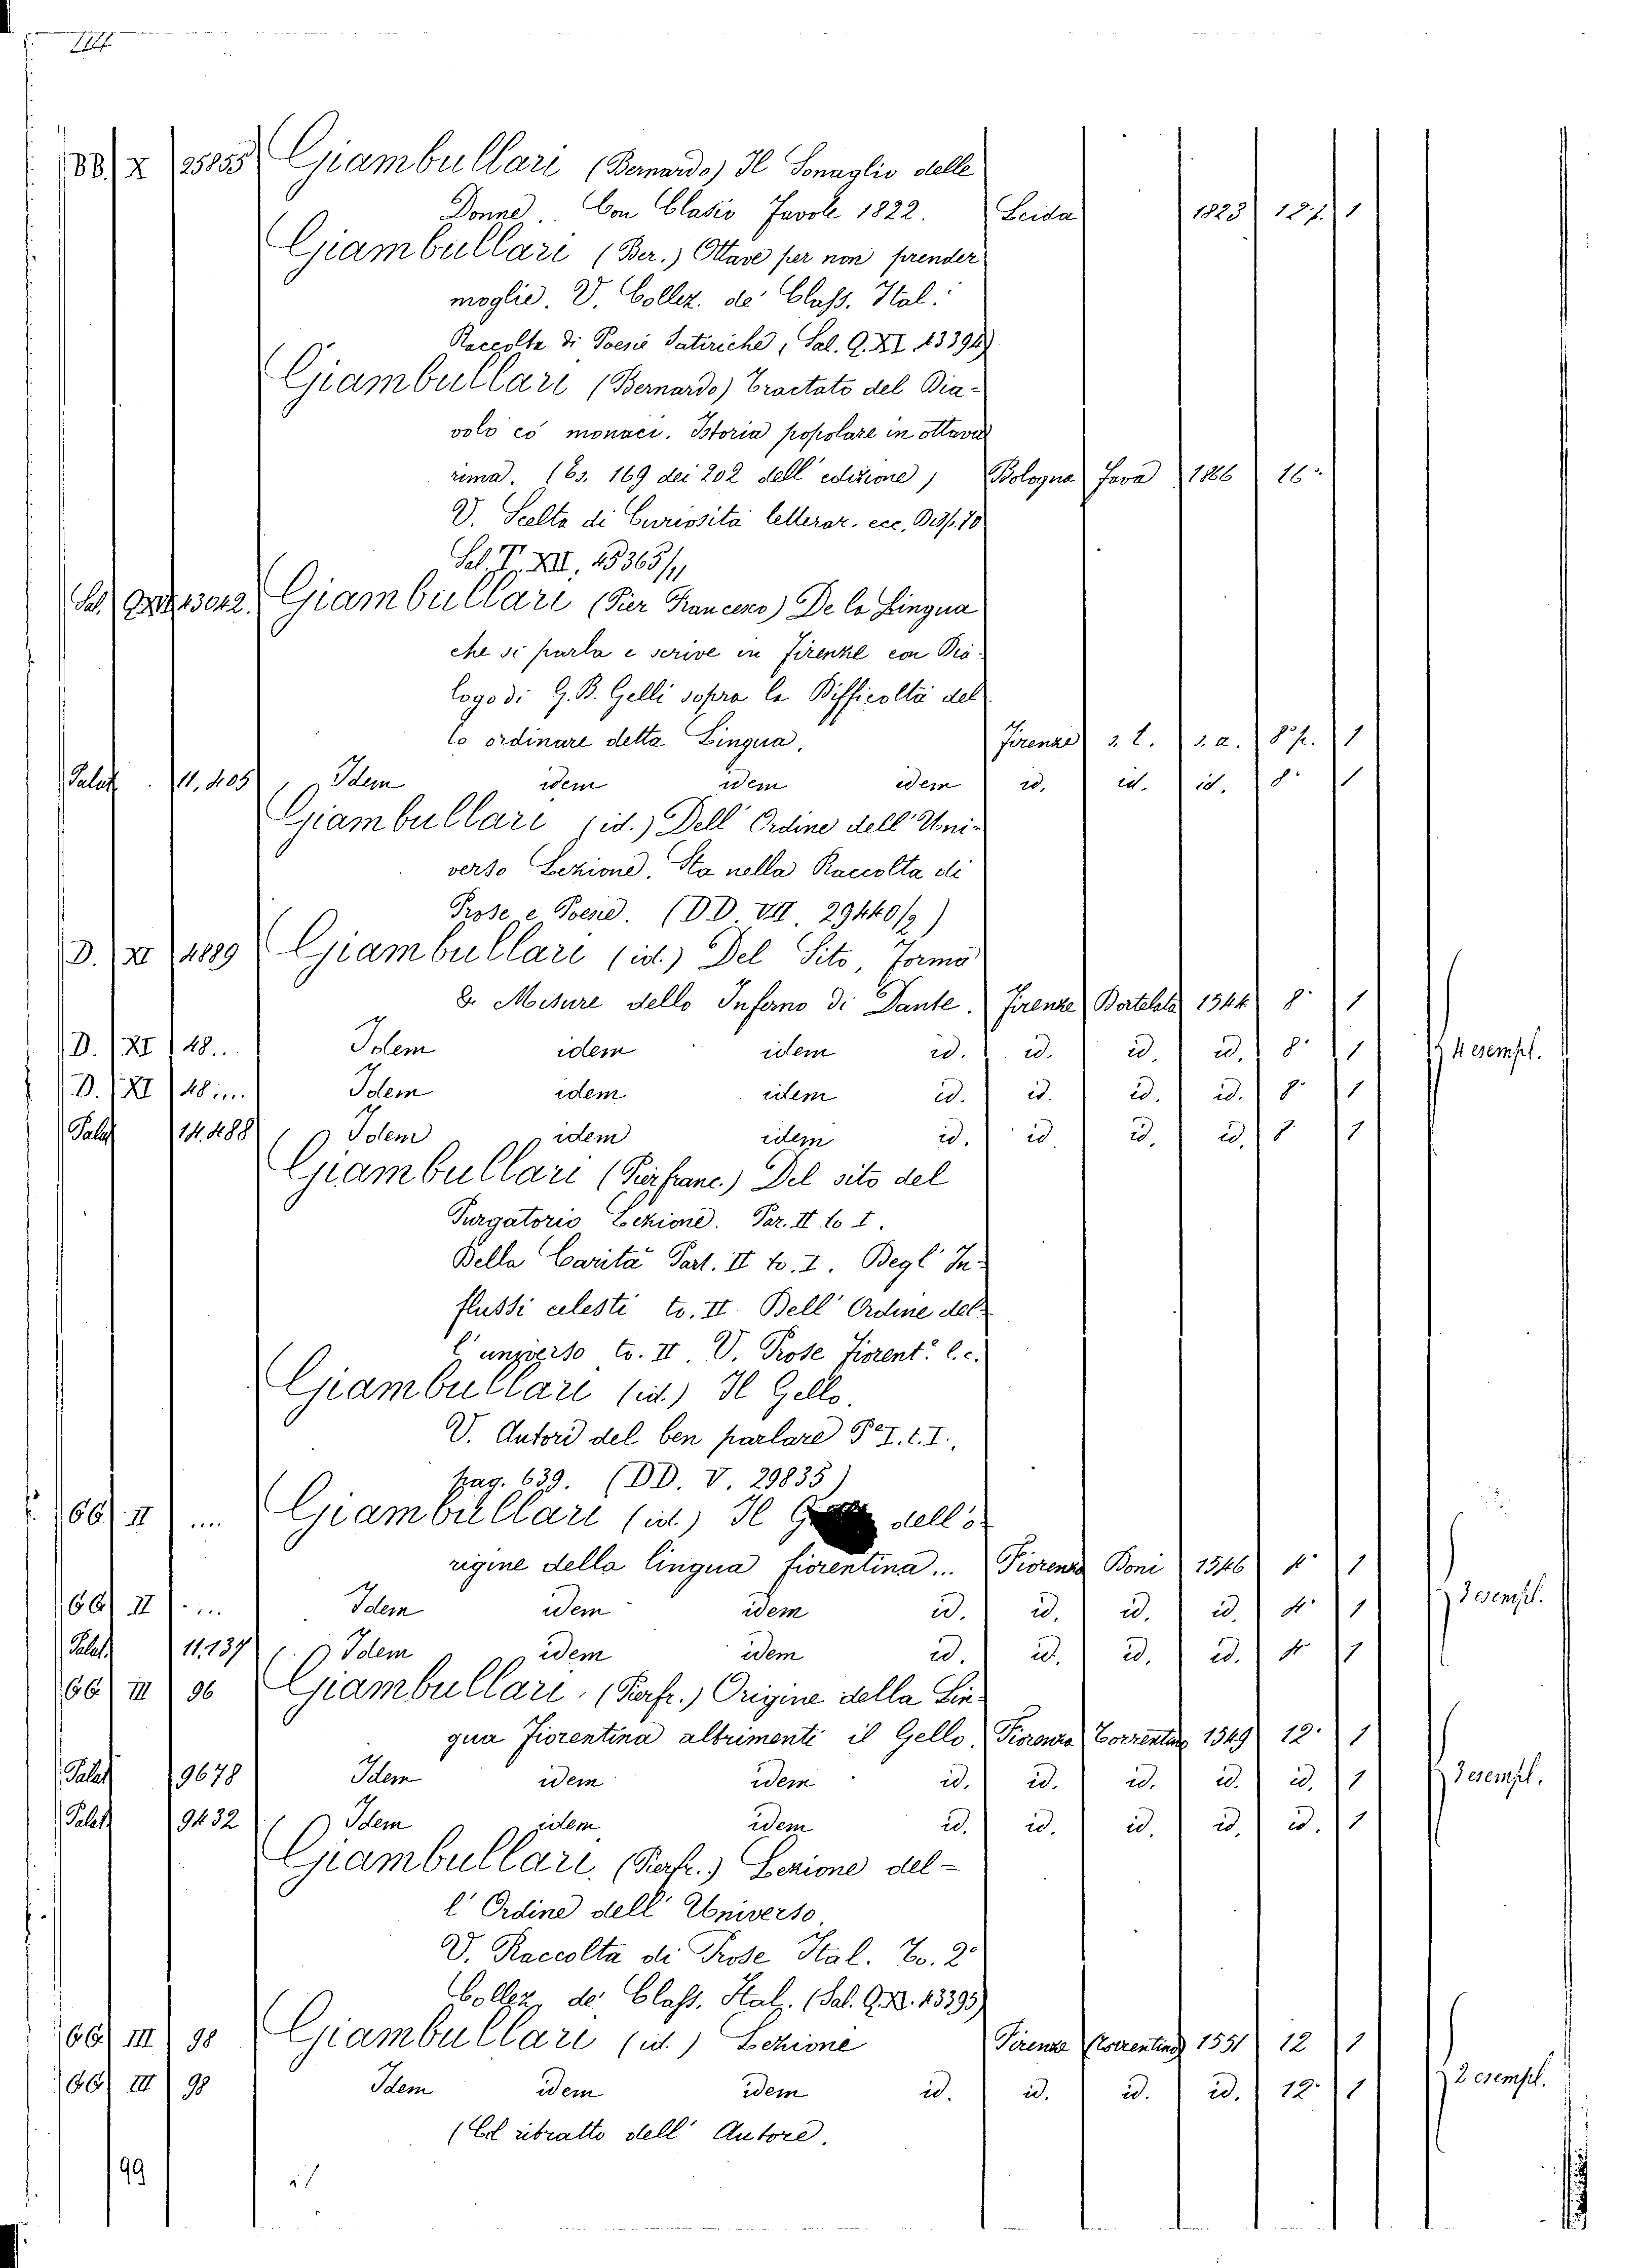 BB. X 25855 Giambullari (Bernardo) Il Sonaglio delle
Donne. Con Clasio Favole 1822. Leida 1823 12. p. 1
Giambullari (Ber.) Ottave per non prender
moglie. V. Collez. de' Class. Ital.
Raccolta di Poesie Satiriche, Sal. Q. XI 13394)
Giambullari (Bernardo) Tractato del Dia-
volo co' monaci. Istoria popolare in ottava
rima. (Es. 169 dei 202 dell' edizione) Bologna Fava 1866 16°
V. Scelta di Curiosità letterar. ecc. Disp. 70
Sal. T. XII, 15365/11
Sal. 13042. Giambullari (Pier Francesco) De la Lingua
che si parla e scrive in Firenze con Dia-
logo di G. B. Gelli sopra la Difficoltà del
lo ordinare detta Lingua. Firenze s. t. s. a. 8° p. 1
Palat. 11,405 Idem idem idem idem id. id. id. 8° 1
Giambullari (id.) Dell' Ordine dell' Uni-
verso Lezione. Sta nella Raccolta di
Prose e Poesie. (DD. VII. 29440/2)
D. XI 4889 Giambullari (id.) Del Sito, Forma
& Misure dello Inferno di Dante. Firenze 1544 8° 1
D. XI 48.. Idem idem idem id. id. id. id. 8° 1 4 esempl.
D. XI 48.... Idem idem idem id. id. id. id. 8° 1
Palat 14.488 Idem idem idem id. id. id. id. 8° 1
Giambullari (Pierfranc.) Del sito del
Purgatorio Lezione. Par. II to I.
Della Carità Part. II to. I. Degl' In-
flussi celesti to. II Dell' Ordine del-
l'universo to. II. V. Prose Fiorent.e l.c.
Giambullari (id.) Il Gello.
V. Autori del ben parlare P.e I. t. I.,
pag. 639. (DD. V. 29835)
66. II .... Giambullari (id.) Il dell'o-
rigine della lingua fiorentina... Fiorenza Doni 1546 4° 1
66 II .... Idem idem idem id. id. id. id. 4° 1 3 esempl.
Palat. 11.137 Idem idem idem id. id. id. id. 4° 1
66 III 96 Giambullari. (Pierfr.) Origine della Lin-
gua Fiorentina altrimenti il Gello. Fiorenza Torrentino 1549 12° 1
Palat 9678 Idem idem idem id. id. id. id. id. 1 3 esempl.
Palat 9432 Idem idem idem id. id. id. id. id. 1
Giambullari. (Pierfr.) Lezione del-
l' Ordine dell' Universo
V. Raccolta di Prose Ital. To. 2°
Collez. de' Class. Ital. (Sal. Q. XI. 13395)
66 III 98 Giambullari (id.) Lezione Firenze (Torrentino) 1551 12 1
66 III 98 Idem idem idem id. id. id. id. 12° 1 2 esempl.
(Col ritratto dell' Autore.
99